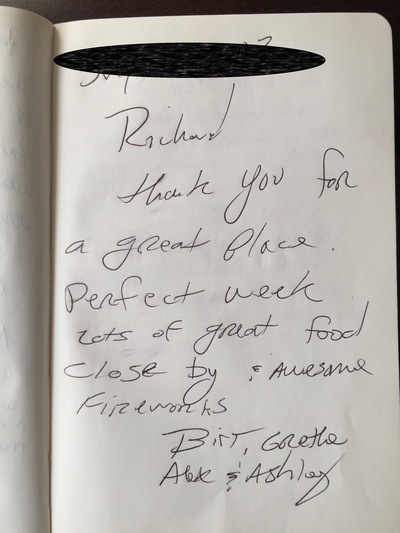 Richard
thank you for
a great place.
Perfect week
Lots of great food
Close by & Awesome
Fireworks
Birt, Grethe
Alex & Ashley